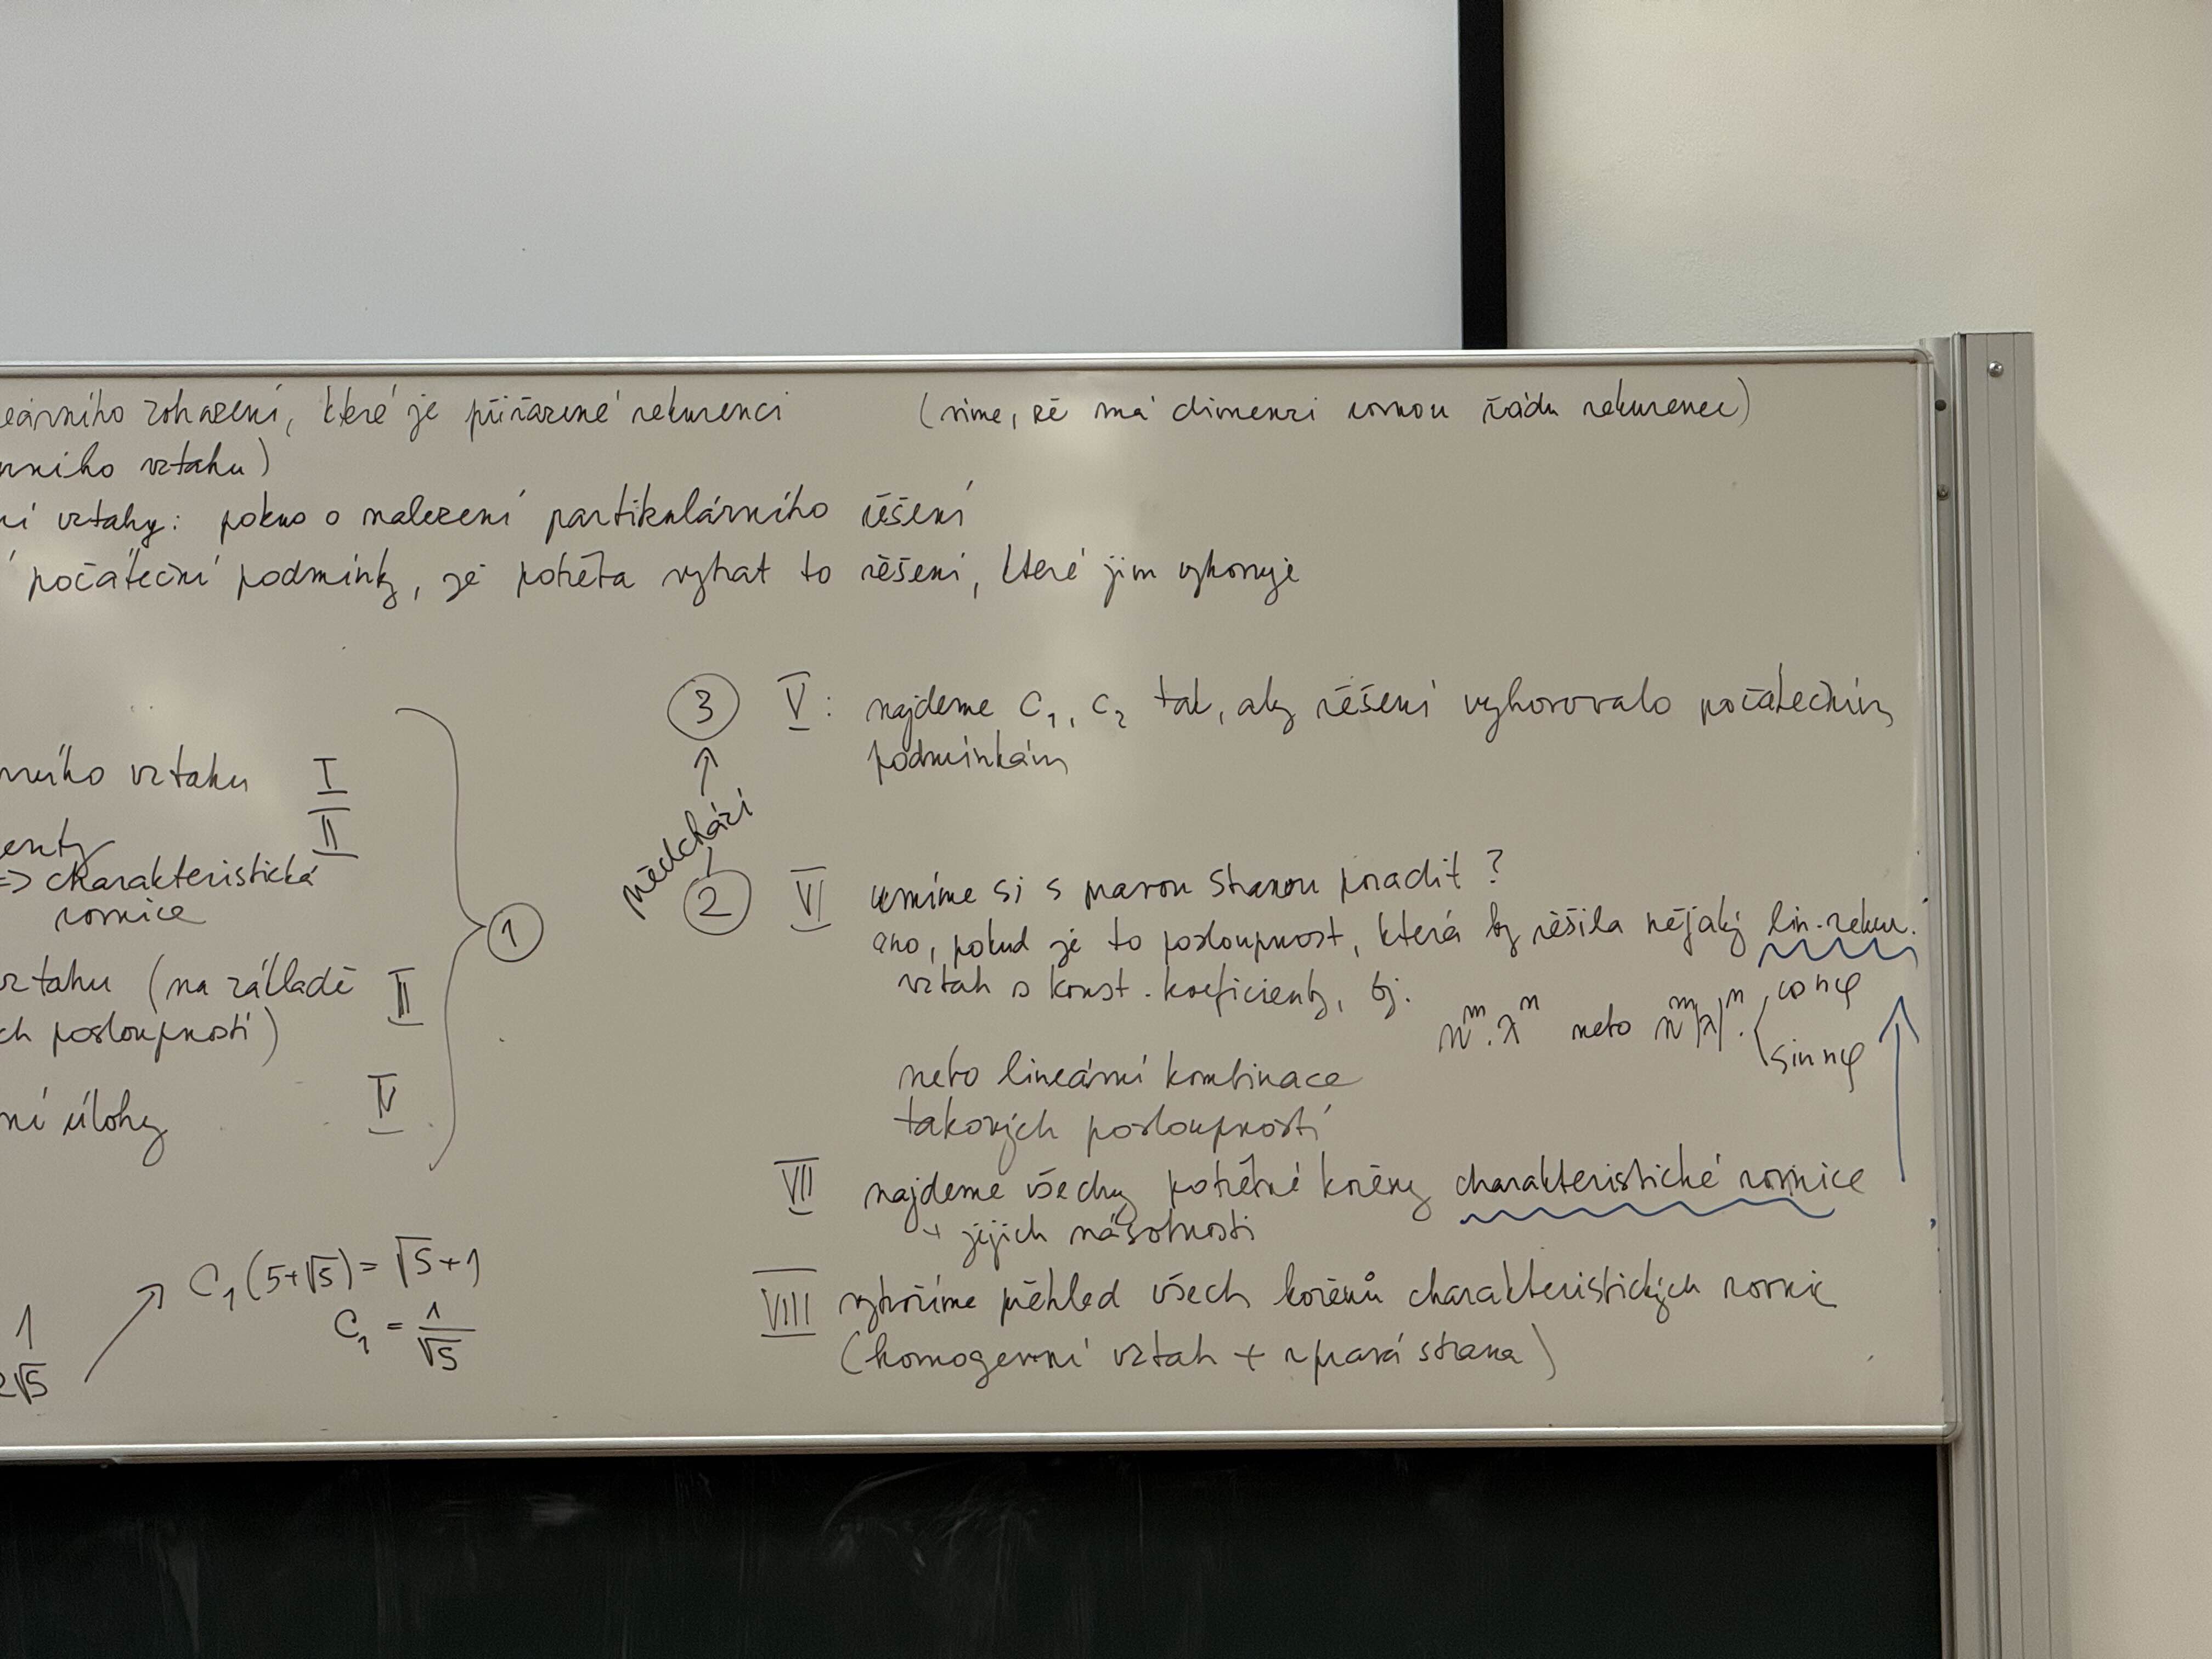 eárního zobrazení, které je přiřazené rekurenci (víme, že má dimenzi rovnou řádu rekurence)
rního vztahu)
ní vztahy: pokus o nalezení partikulárního řešení
počáteční podmínky, je potřeba vybrat to řešení, které jim vyhovuje
③ V: najdeme C₁, C₂ tak, aby řešení vyhovovalo počátečním
podmínkám
ního vztahu I
enty II
=> charakteristická
rovnice
①
vztahu (na základě III
ch posloupností)
ní úlohy IV
předchází
② VI umíme si s pravou stranou poradit?
ano, pokud je to posloupnost, která by řešila nějaký lin. rekur.
vztah s konst. koeficienty, tj. n^m·λ^n nebo n^m|λ|^n· cos nφ
sin nφ
nebo lineární kombinace
takových posloupností
VII najdeme všechny potřebné kořeny charakteristické rovnice
+ jejich násobnosti
VIII vytvoříme přehled všech kořenů charakteristických rovnic
(homogenní vztah + pravá strana)
C₁(5+√5) = √5+1
C₁ = 1/√5
1
2√5